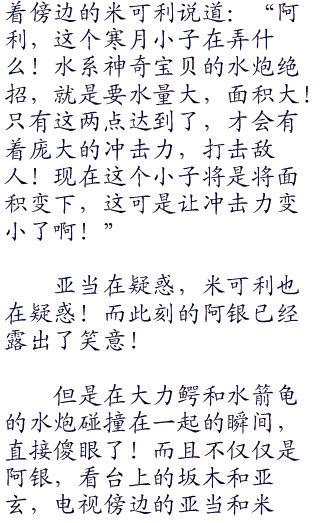 着傍边的米可利说道：“阿
利，这个寒月小子在弄什
么！水系神奇宝贝的水炮绝
招，就是要水量大，面积大！
只有这两点达到了，才会有
着庞大的冲击力，打击敌
人！现在这个小子将是将面
积变下，这可是让冲击力变
小了啊！”
亚当在疑惑，米可利也
在疑惑！而此刻的阿银已经
露出了笑意！
但是在大力鳄和水箭龟
的水炮碰撞在一起的瞬间，
直接傻眼了！而且不仅仅是
阿银，看台上的坂木和亚
玄，电视傍边的亚当和米